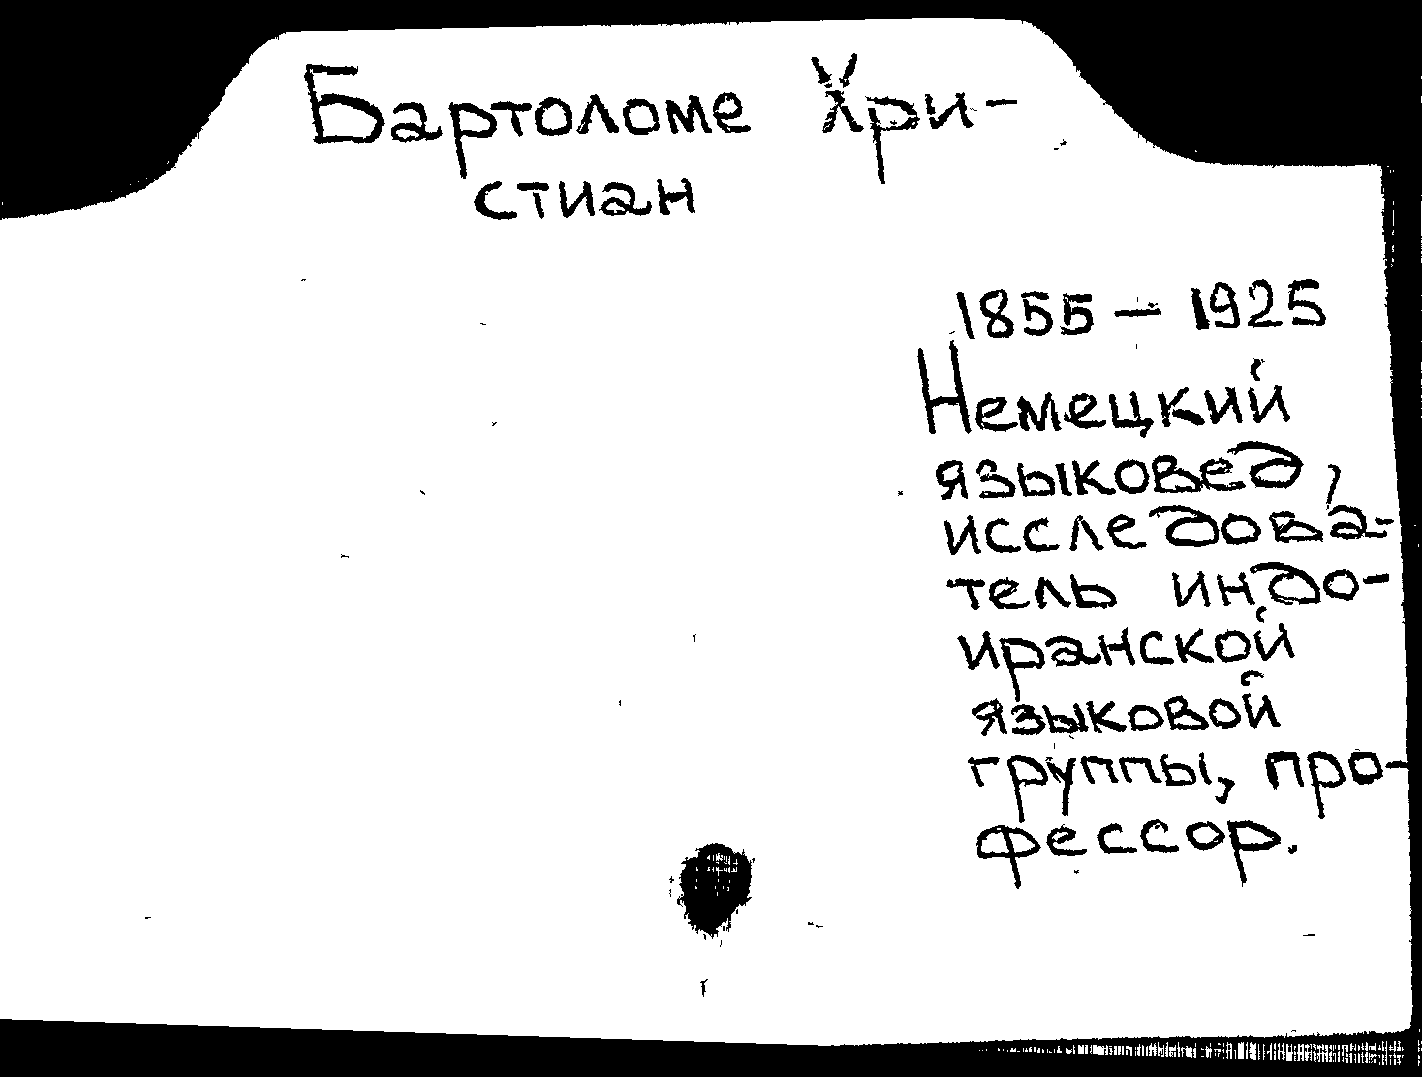 Бартоломе Хри-
стиан
1855 – 1925
Немецкий
языковед,
исследова-
тель индо-
иранской
языковой
группы, про-
фессор.